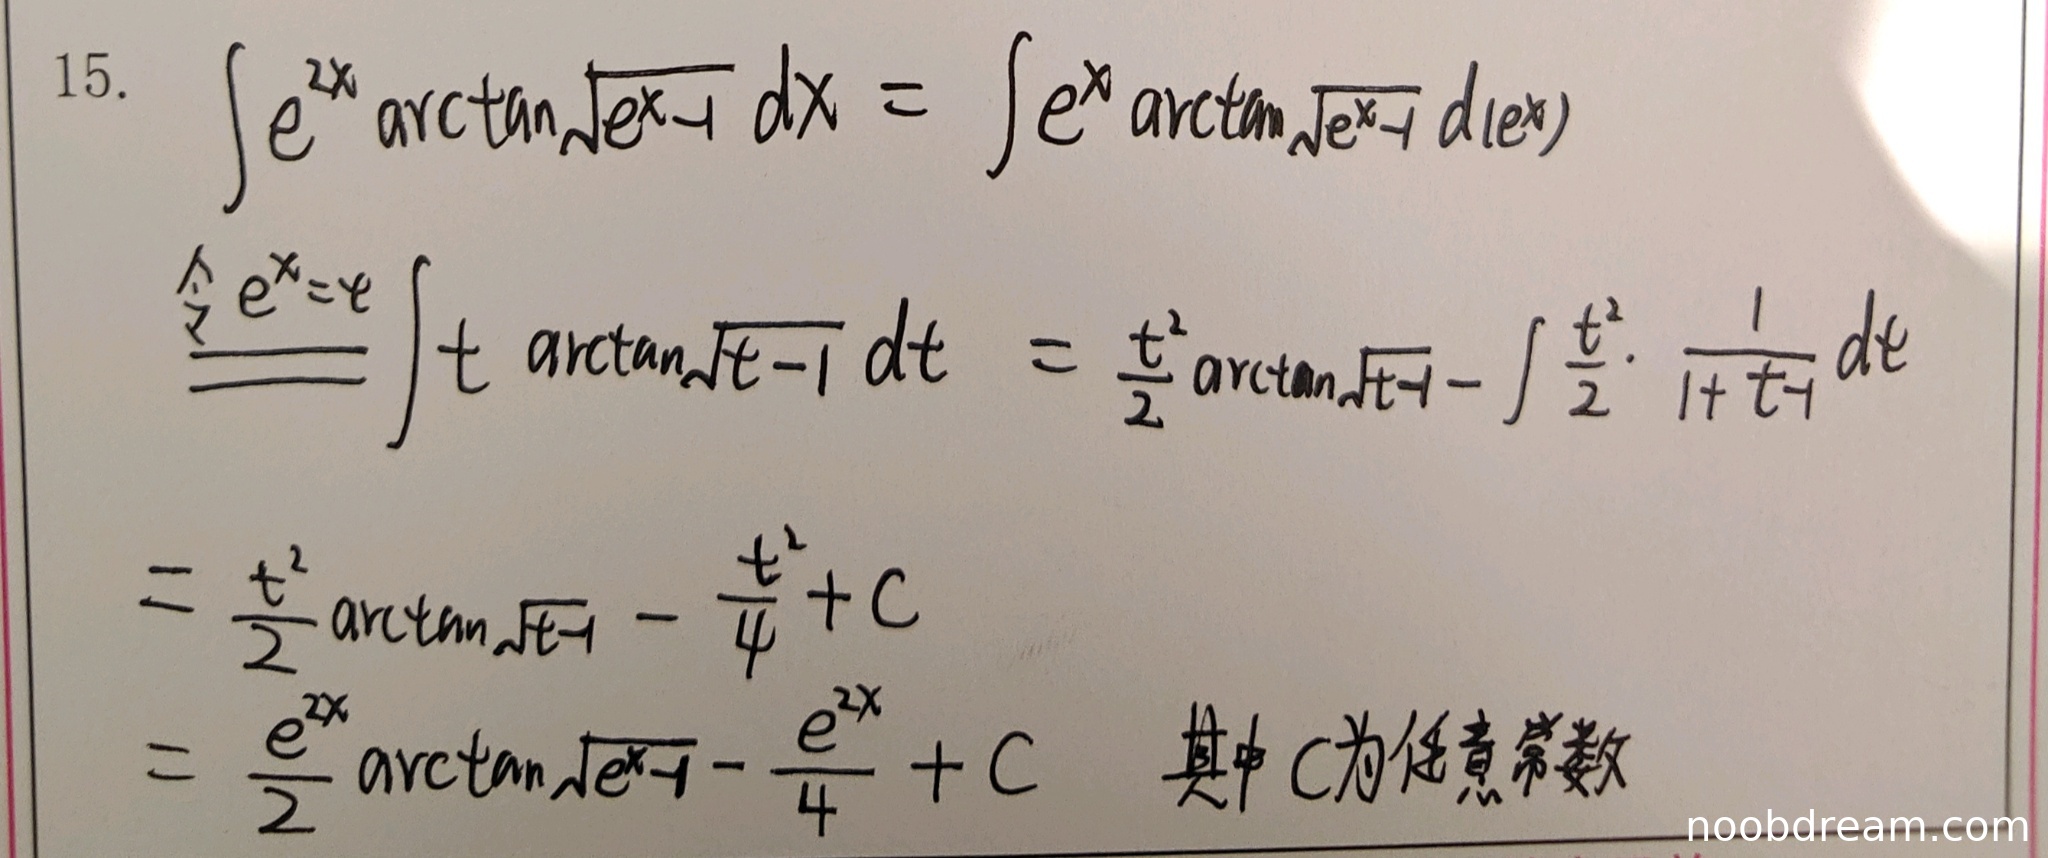 15. ∫ e^{2x} arctan√(e^x-1) dx = ∫ e^x arctan√(e^x-1) d(e^x)
令 e^x=t ∫ t arctan√(t-1) dt = t²/2 arctan√(t-1) - ∫ t²/2 · 1/(1+t-1) dt
= t²/2 arctan√(t-1) - t²/4 + C
= e^{2x}/2 arctan√(e^x-1) - e^{2x}/4 + C 其中C为任意常数
noobdream.com